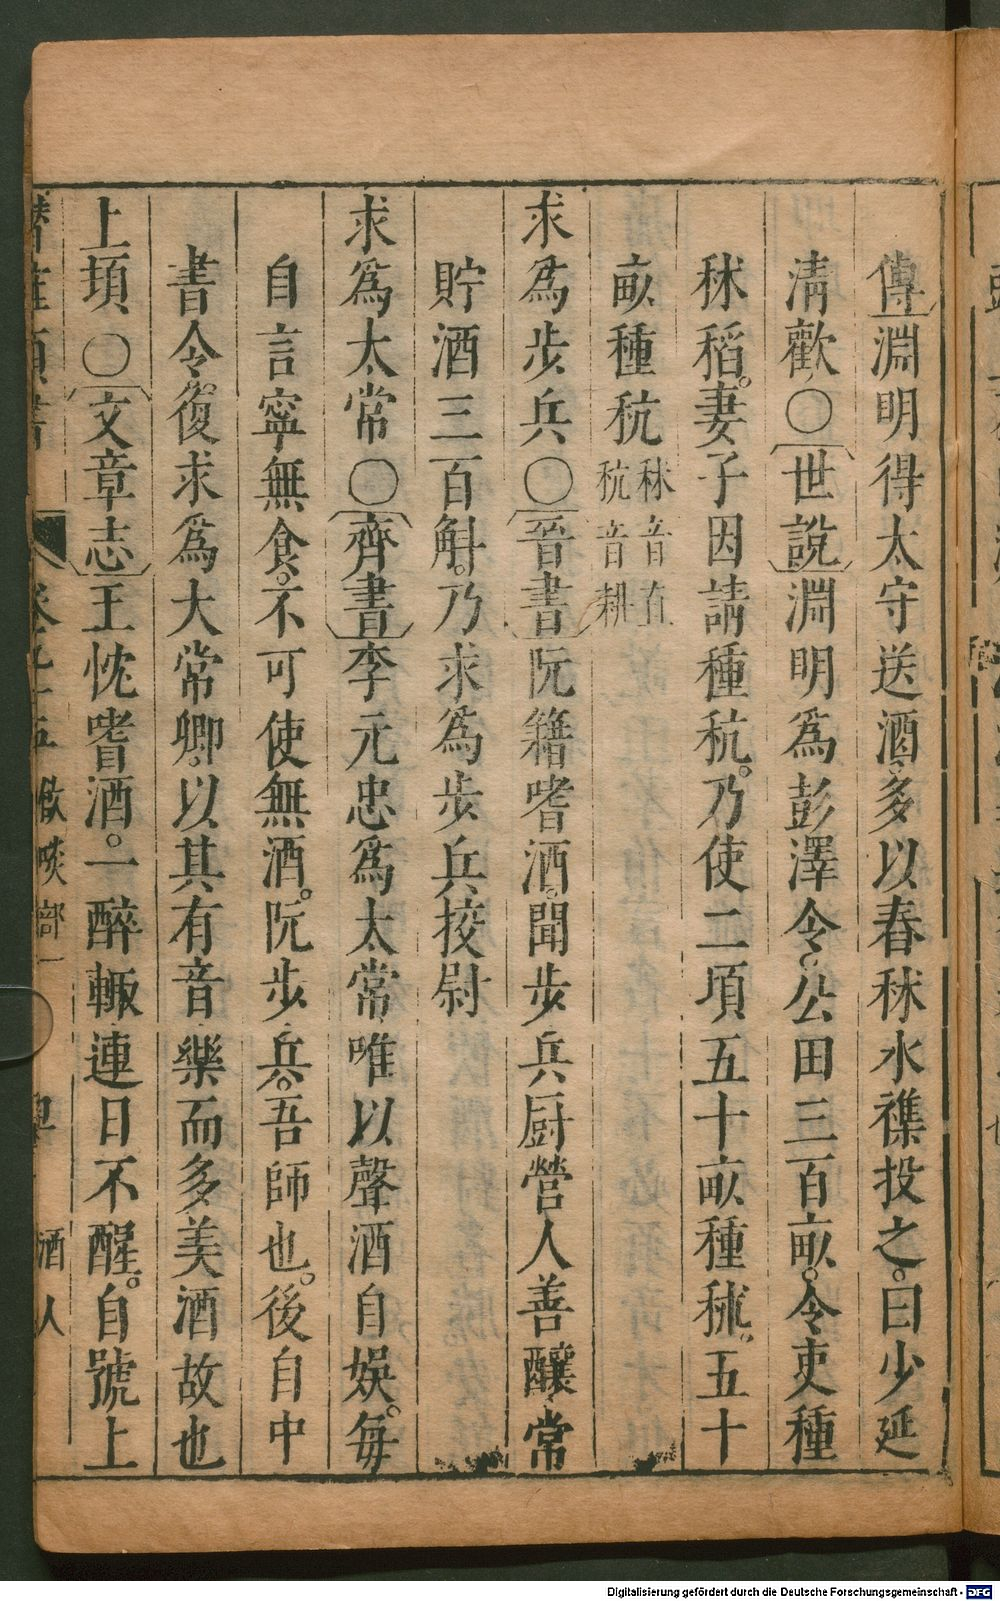 傳淵明得太守送酒多以春秫水襍投之曰少延
清歡○世說淵明爲彭澤令公田三百畝令吏種
秫稻妻子因請種秔乃使二項五十畝種秫五十
畝種秔秫音
秔音耕
求爲步兵○晉書阮籍嗜酒聞步兵厨營人善釀常
貯酒三百斛乃求爲步兵挍尉
求爲太常○齊書李元忠爲太常唯以聲酒自娯每
自言寧無食不可使無酒阮步兵吾師也後自中
書令復求爲大常卿以其有音樂而多美酒故也
上頓○文章志王忱嗜酒一醉輙連日不醒自號上
酒人
Digitalisierung gefördert durch die Deutsche Forschungsgemeinschaft - DFG